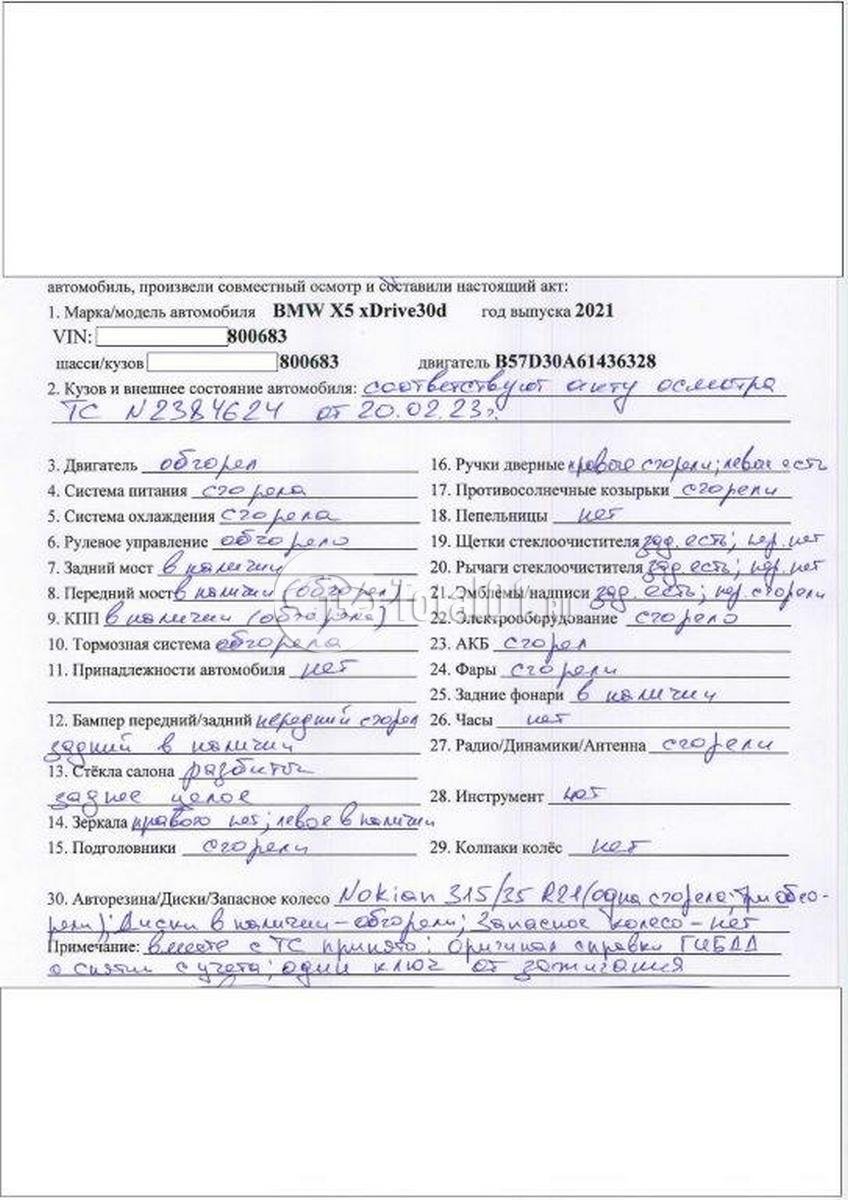 автомобиль, произвели совместный осмотр и составили настоящий акт:
1. Марка/модель автомобиля BMW X5 xDrive30d год выпуска 2021
VIN: 800683
шасси/кузов 800683 двигатель B57D30A61436328
2. Кузов и внешнее состояние автомобиля: соответствуют акту осмотра
ТС N2384624 от 20.02.23г.
3. Двигатель обгорел
4. Система питания сгорела
5. Система охлаждения сгорела
6. Рулевое управление обгорело
7. Задний мост в наличии
8. Передний мост в наличии (обгорел)
9. КПП в наличии (обгорела)
10. Тормозная система обгорела
11. Принадлежности автомобиля нет
12. Бампер передний/задний передний сгорел
задний в наличии
13. Стёкла салона разбиты
заднее целое
14. Зеркала правого нет; левое в наличии
15. Подголовники сгорели
16. Ручки дверные правые сгорели; левые есть
17. Противосолнечные козырьки сгорели
18. Пепельницы нет
19. Щетки стеклоочистителя зад. есть; пер. нет
20. Рычаги стеклоочистителя зад. есть; пер. нет
21. Эмблемы/надписи зад. есть; пер. сгорели
22. Электрооборудование сгорело
23. АКБ сгорел
24. Фары сгорели
25. Задние фонари в наличии
26. Часы нет
27. Радио/Динамики/Антенна сгорели
28. Инструмент нет
29. Колпаки колёс нет
30. Авторезина/Диски/Запасное колесо Nokian 315/35 R21 (одна сгорела; три обго-
рели); Диски в наличии - обгорели; Запасное колесо - нет
Примечание: вместе с ТС принято: Оригинал справки ГИБДД
о снятии с учета; один ключ от зажигания